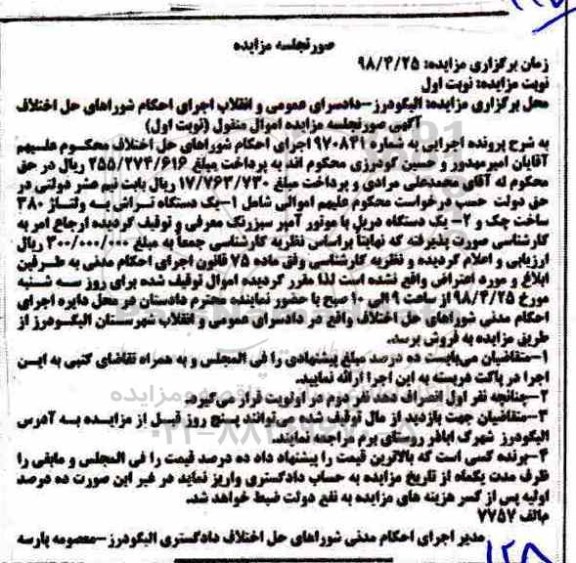 صورتجلسه مزایده
زمان برگزاری مزایده: ۹۸/۴/۲۵
نوبت مزایده: نوبت اول
محل برگزاری مزایده: الیگودرز-دادسرای عمومی و انقلاب اجرای احکام شوراهای حل اختلاف
آگهی صورتجلسه مزایده اموال منقول (نوبت اول)
به شرح پرونده اجرایی به شماره ۹۷۰۸۴۱ اجرای احکام شوراهای حل اختلاف محکوم علیهم
آقایان امیر مهدور و حسین گودرزی محکوم اند به پرداخت مبلغ ۲۵۵/۲۷۴/۶۱۶ ریال در حق
محکوم له آقای محمدعلی مرادی و پرداخت مبلغ ۱۷/۷۶۳/۷۳۰ ریال بابت نیم عشر دولتی در
حق دولت حسب درخواست محکوم علیهم اموالی شامل ۱-یک دستگاه تراش به ولتاژ ۳۸۰
ساخت چک و ۲- یک دستگاه دریل با موتور آمپر سبزرنگ معرفی و توقیف گردیده ارجاع امر به
کارشناسی صورت پذیرفته که نهایتاً براساس نظریه کارشناسی جمعاً به مبلغ ۳۰۰/۰۰۰/۰۰۰ ریال
ارزیابی و اعلام گردیده و نظریه کارشناسی وفق ماده ۷۵ قانون اجرای احکام مدنی به طرفین
ابلاغ و مورد اعتراض واقع نشده است لذا مقرر گردیده اموال توقیف شده برای روز سه شنبه
مورخ ۹۸/۴/۲۵ از ساعت ۹ الی ۱۰ صبح با حضور نماینده محترم دادستان در محل دایره اجرای
احکام مدنی شوراهای حل اختلاف واقع در دادسرای عمومی و انقلاب شهرستان الیگودرز از
طریق مزایده به فروش برسد.
۱-متقاضیان می‌بایست ده درصد مبلغ پیشنهادی را فی المجلس و به همراه تقاضای کتبی به این
اجرا در پاکت دربسته به این اجرا ارائه نمایید.
۲-چنانچه نفر اول انصراف دهد نفر دوم در اولویت قرار می‌گیرد.
۳-متقاضیان جهت بازدید از مال توقیف شده می‌توانند پنج روز قبل از مزایده به آدرس
الیگودرز شهرک اباذر روستای برم مراجعه نمایند.
۴-برنده کسی است که بالاترین قیمت را پیشنهاد داد ده درصد قیمت را فی المجلس و مابقی را
ظرف مدت یکماه از تاریخ مزایده به حساب دادگستری واریز نماید در غیر این صورت ده درصد
اولیه پس از کسر هزینه های مزایده به نفع دولت ضبط خواهد شد.
م‌الف ۷۷۵۷
مدیر اجرای احکام مدنی شوراهای حل اختلاف دادگستری الیگودرز-معصومه پارسه
۱۲۸